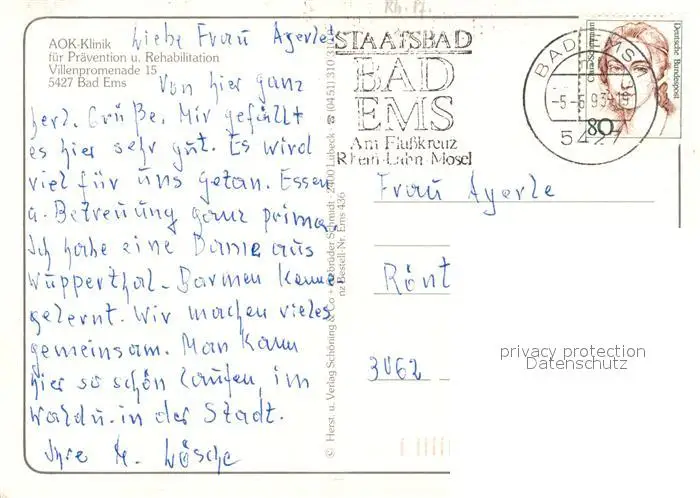 Rh. Pf.
AOK-Klinik
für Prävention u. Rehabilitation
Villenpromenade 15
5427 Bad Ems
Liebe Frau Ayerle!
Von hier ganz
herzl. Grüße. Mir gefällt
es hier sehr gut. Es wird
viel für uns getan. Essen
u. Betreuung ganz prima.
Ich habe eine Dame aus
Wuppertal-Barmen kennen
gelernt. Wir machen vieles
gemeinsam. Man kann
hier so schön laufen, im
Wald u. in der Stadt.
Ihre H. Lösche
© Herst. u. Verlag Schöning & Co + Gebrüder Schmidt · 2400 Lübeck ☎ (0451) 310
nz Bestell-Nr. Ems 436
STAATSBAD
BAD
EMS
Am Flußkreuz
Rhein-Lahn-Mosel
BAD EMS 1
-5.-6.93-19
5427
Clara Schumann
Deutsche Bundespost
80
Frau Ayerle
Rönt
3062
privacy protection
Datenschutz